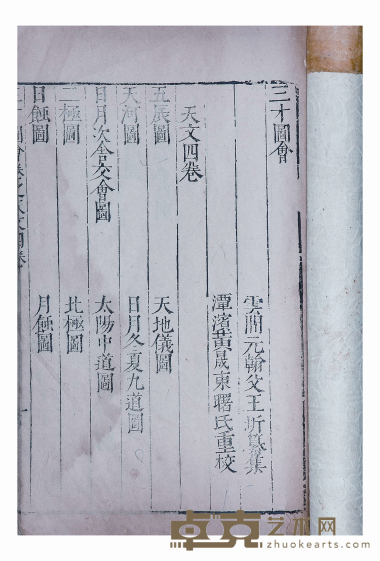 三才圖會
雲間元翰父王圻纂集
潭濱黃晟東曙氏重校
天文四卷
五辰圖
天地儀圖
天河圖
日月冬夏九道圖
日月次舍交會圖
太陽中道圖
二極圖
北極圖
日蝕圖
月蝕圖
三才圖會卷之天文四卷
一
卓克艺术网
zhuokearts.com